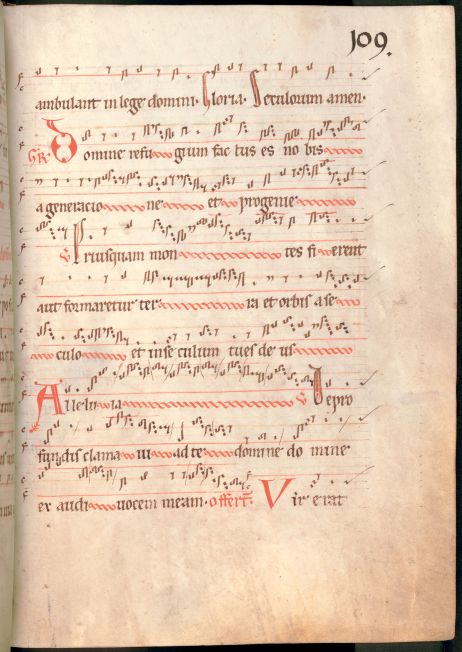 109.
ambulant in lege domini. Gloria. Seculorum amen.
GR. Domine refugium factus es nobis
a generacione et progenie
V Priusquam montes fierent
aut formaretur terra et orbis a se
culo et in seculum tu es deus
Alleluia V De pro
fundis clamavi ad te domine domine
exaudi vocem meam. offert. Vir erat